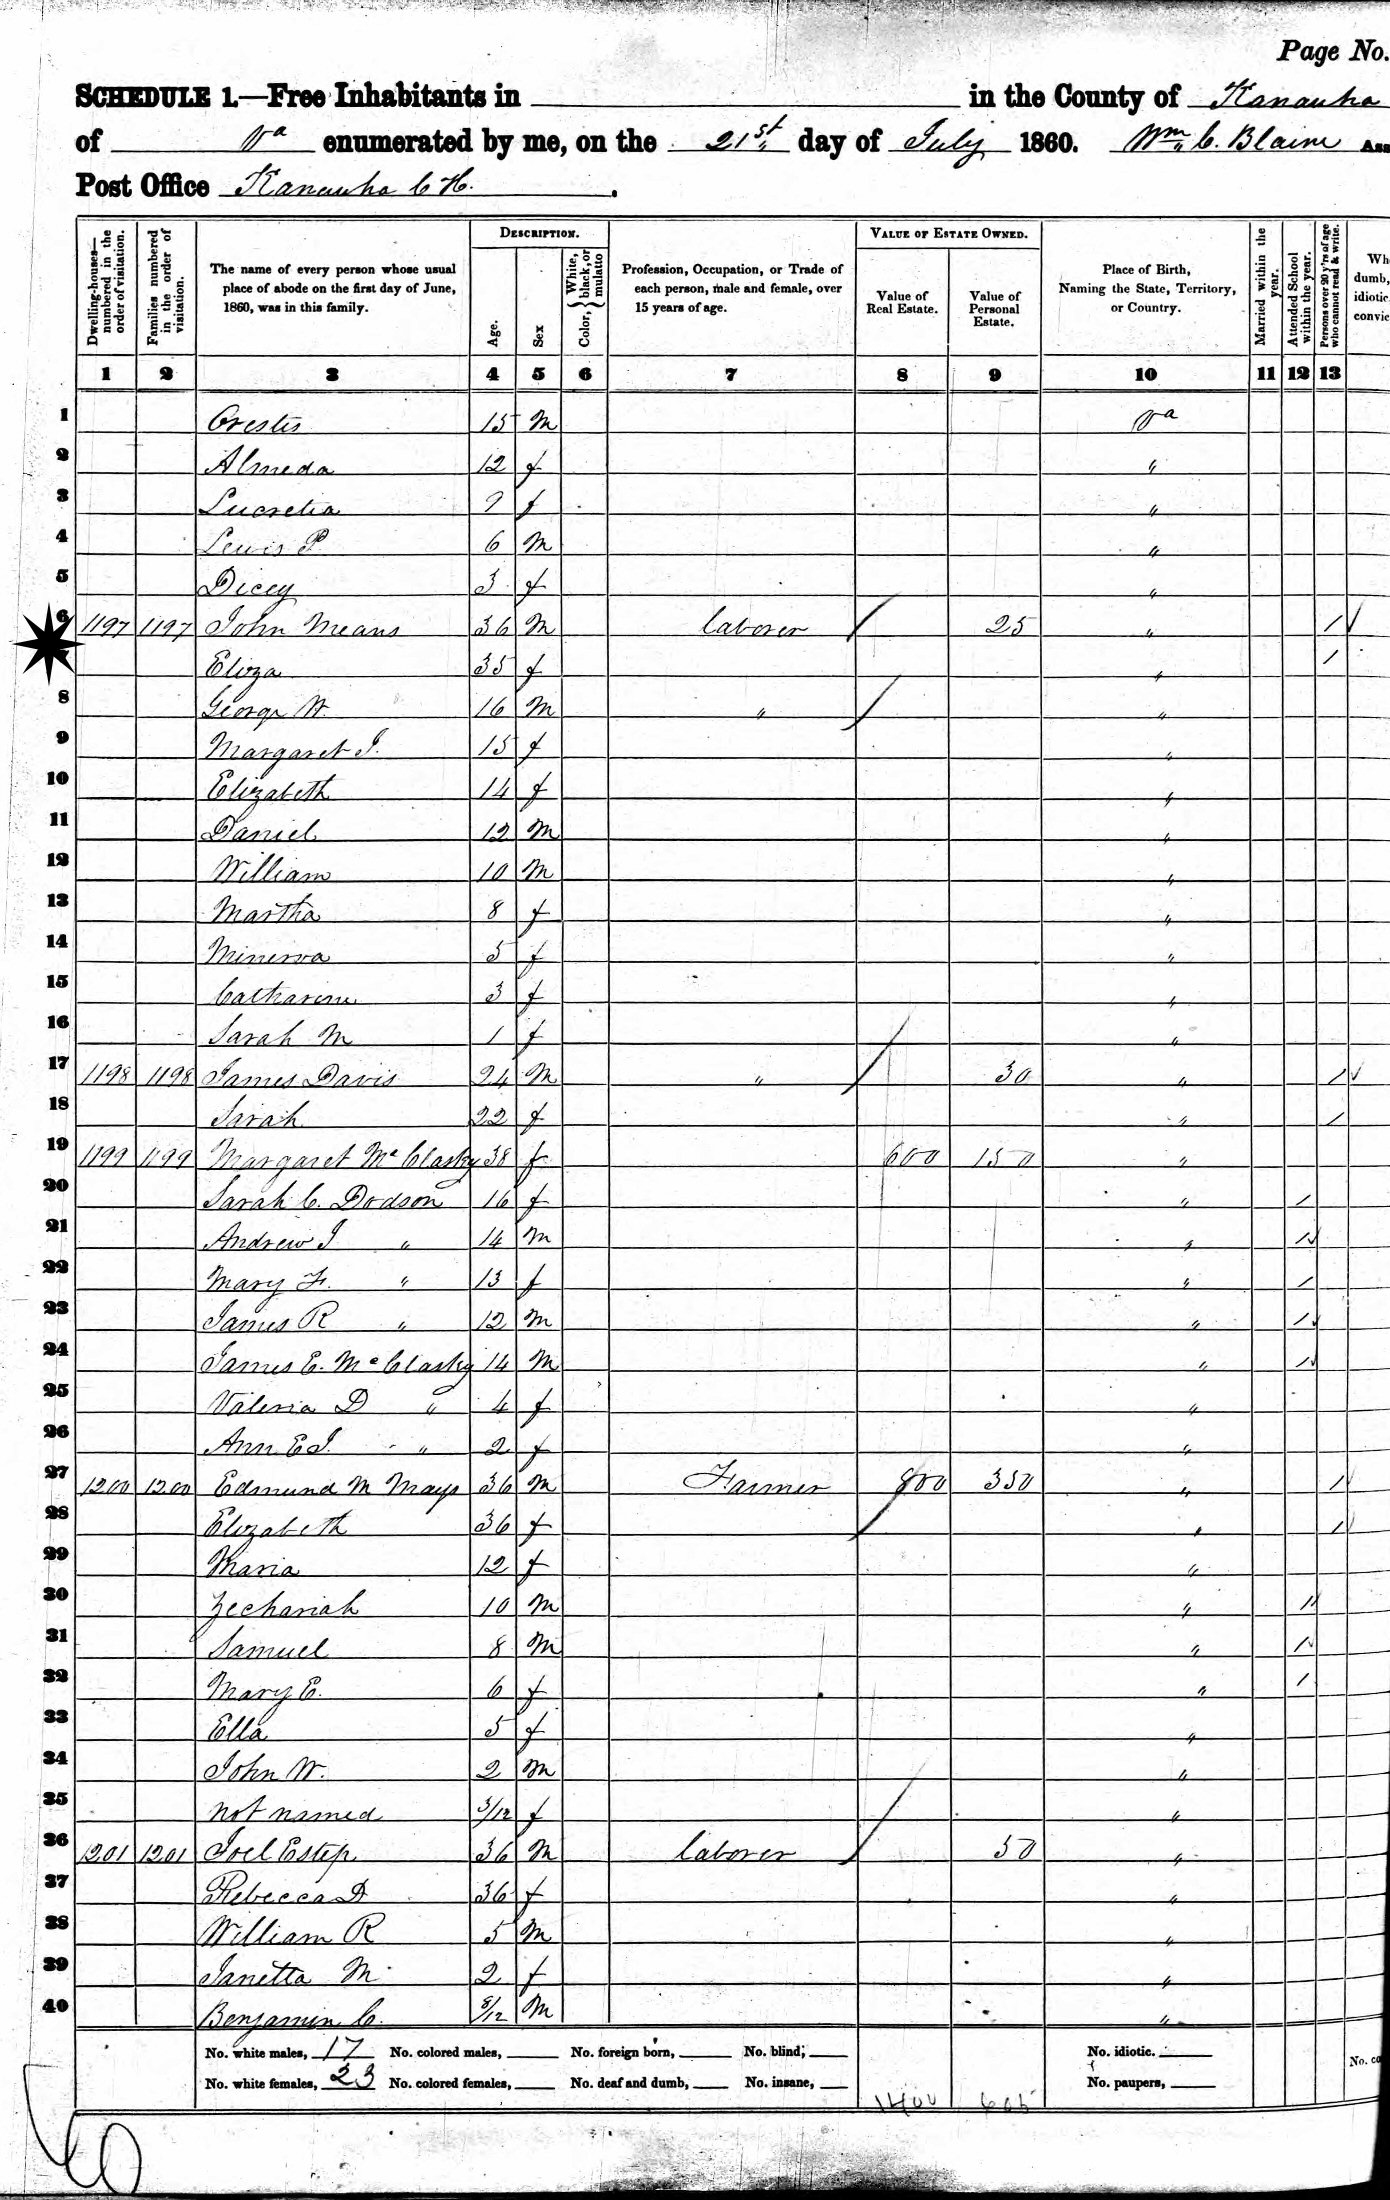 Page No.
SCHEDULE 1.—Free Inhabitants in in the County of Kanawha
of Va enumerated by me, on the 21st day of July 1860. Wm C. Blaine Ass
Post Office Kanawha C H.
DESCRIPTION. VALUE OF ESTATE OWNED.
Dwelling-houses—numbered in the order of visitation. Families numbered in the order of visitation. The name of every person whose usual place of abode on the first day of June, 1860, was in this family. Age. Sex Color, { White, black, or mulatto Profession, Occupation, or Trade of each person, male and female, over 15 years of age. Value of Real Estate. Value of Personal Estate. Place of Birth, Naming the State, Territory, or Country. Married within the year. Attended School within the year. Persons over 20 y'rs of age who cannot read & write. Wh dumb, idiotic convic
1 2 3 4 5 6 7 8 9 10 11 12 13
1 Orestes 15 M Va
2 Almeda 12 f "
3 Lucretia 7 f "
4 Lewis P 6 M "
5 Dicey 3 f "
6 1197 1197 John Means 36 M laborer 25 " 1
Eliza 35 f " 1
8 George W. 16 M " "
9 Margaret J. 15 f "
10 Elizabeth 14 f "
11 Daniel 12 M "
12 William 10 M "
13 Martha 8 f "
14 Minerva 5 f "
15 Catharine 3 f "
16 Sarah M 1 f "
17 1198 1198 James Davis 24 M " 30 " 1
18 Sarah 22 f " 1
19 1199 1199 Margaret McClasky 38 f 600 150 "
20 Sarah C. Dodson 16 f " 1
21 Andrew J " 14 M " 1
22 Mary F. " 13 f " 1
23 James R " 12 M " 1
24 James E. McClasky 14 M " 1
25 Valeria D " 4 f "
26 Ann E J. " 2 f "
27 1200 1200 Edmund M Mays 36 M Farmer 800 350 " 1
28 Elizabeth 36 f " 1
29 Maria 12 f "
30 Zechariah 10 M " 1
31 Samuel 8 M " 1
32 Mary E. 6 f " 1
33 Ella 5 f "
34 John W. 2 M "
35 not named 3/12 f "
36 1201 1201 Joel Estep 36 M laborer 50 "
37 Rebecca 36 f "
38 William R 5 M "
39 Janetta M 2 f "
40 Benjamin C. 8/12 M "
No. white males, 17 No. colored males, No. foreign born, No. blind, No. idiotic. No. co
No. white females, 23 No. colored females, No. deaf and dumb, No. insane, No. paupers,
1400 605